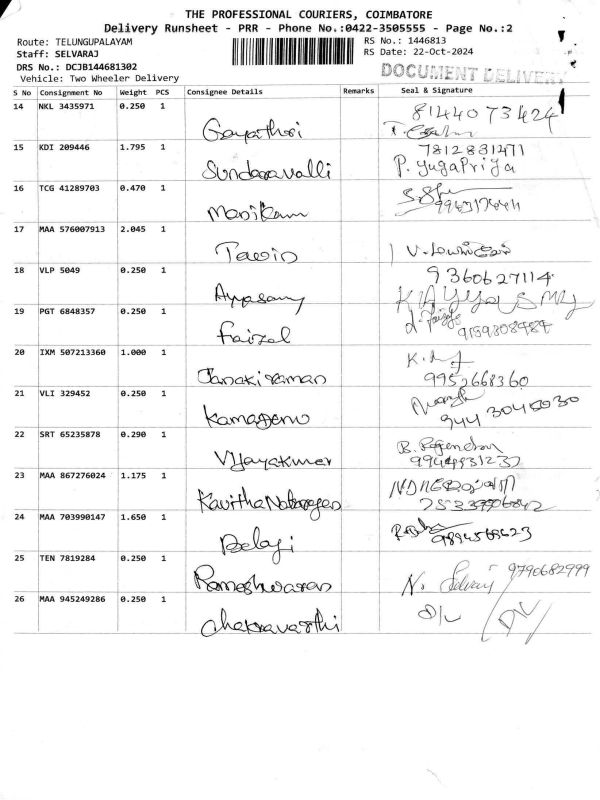 THE PROFESSIONAL COURIERS, COIMBATORE
Delivery Runsheet - PRR - Phone No.:0422-3505555 - Page No.:2
Route: TELUNGUPALAYAM
RS No.: 1446813
Staff: SELVARAJ
RS Date: 22-Oct-2024
DRS No.: DCJB144681302
DOCUMENT DELIVERY
Vehicle: Two Wheeler Delivery
S No Consignment No Weight PCS Consignee Details Remarks Seal & Signature
14 NKL 3435971 0.250 1
Gayathori 8144073424
15 KDI 209446 1.795 1 7812831471
Sundaravalli P. yugapriya
16 TCG 41289703 0.470 1
Manikam
17 MAA 576007913 2.045 1
18 VLP 5049 0.250 1 9360627114
Ayyasamy
19 PGT 6848357 0.250 1
Faizal 9159808484
20 IXM 507213360 1.000 1
Janakiraman 9952668360
21 VLI 329452 0.250 1
Kamadenu
22 SRT 65235878 0.290 1
Vijayakumar
23 MAA 867276024 1.175 1
24 MAA 703990147 1.650 1
Balaji
25 TEN 7819284 0.250 1 9790682999
Rameshwaran N. Selvaraj
26 MAA 945249286 0.250 1 D/L D/L
Chakravarthi